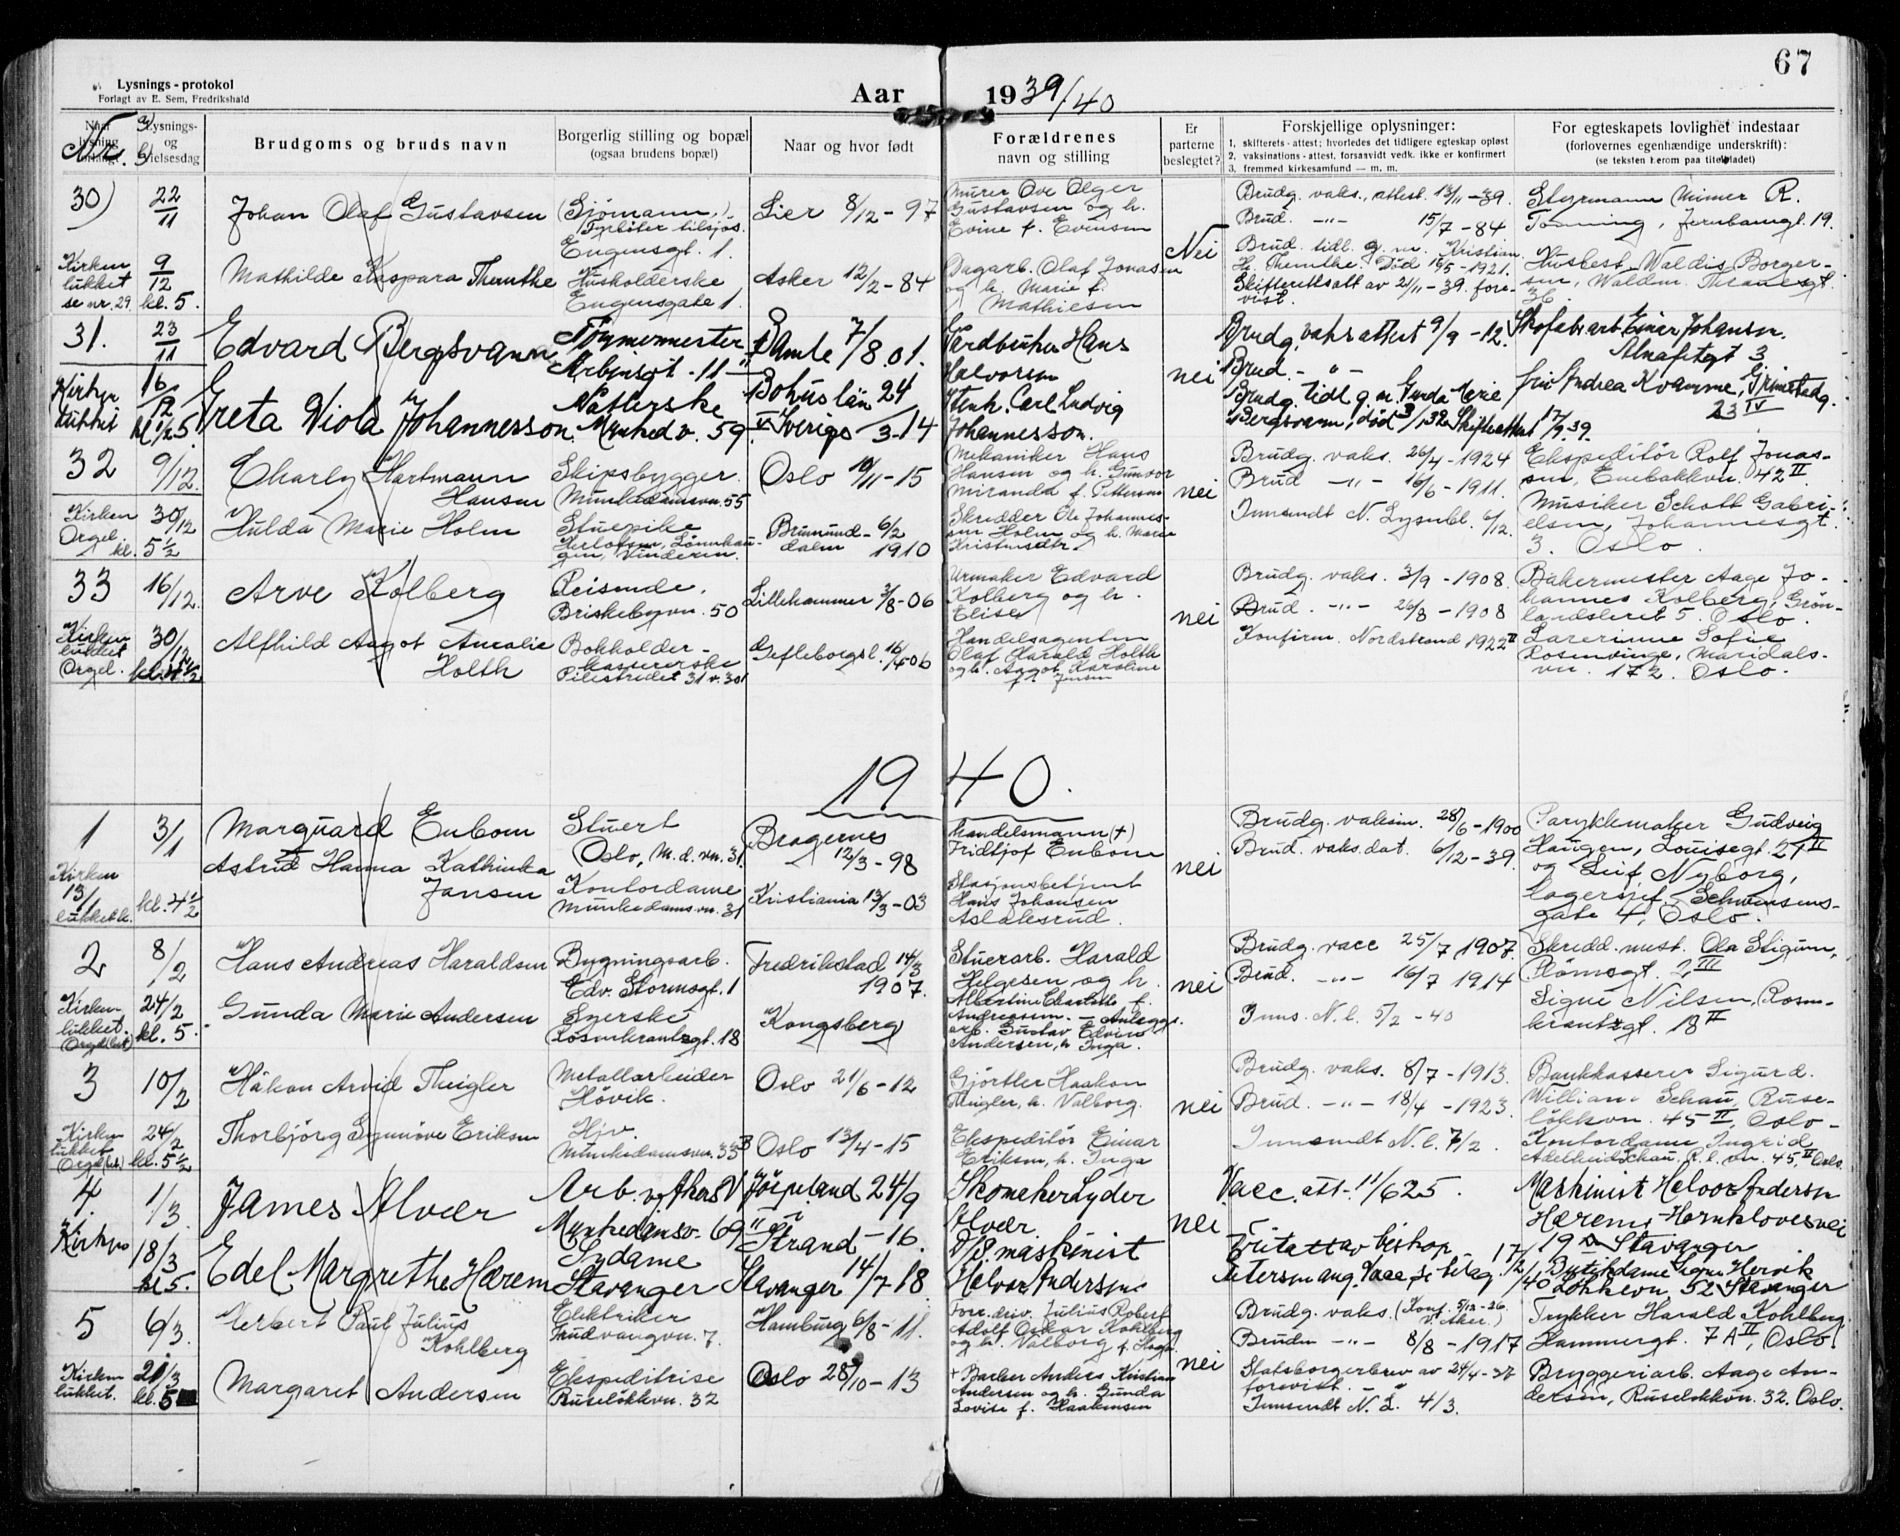 67
Lysnings-protokol
Forlagt av E. Sem, Fredrikshald
Aar 1939/40
Nr.
Lysnings- og vielsesdag
Brudgoms og bruds navn
Borgerlig stilling og bopæl
(ogsaa brudens bopæl)
Naar og hvor født
Forældrenes
navn og stilling
Er parterne beslegtet?
Forskjellige oplysninger:
1. skifterets-attest; hvorledes det tidligere egteskap opløst
2. vaksinations-attest, forsaavidt vedk. ikke er konfirmert
3. fremmed kirkesamfund — m. m.
For egteskapets lovlighet indestaar
(forlovernes egenhændige underskrift):
(se teksten herom paa titelbladet)
30) 22/11
Johan Olaf Gustavsen
(Sjømann,)
Fyrbøter tilsjøs.
Eugensgt. 1.
Lier 8/12-97
Murer Ove Olger
Gustavsen og h.
Evine f. Evensen
Nei
Brudg. vaks. attest. 13/11-39.
Brud. -"- 15/7-84
Styrmann Mimer R.
Tønning, Jernbanegt. 19.
Kirken
lukket
se nr. 29
9/12
kl. 5.
Mathilde Kaspara Themthe
Husholderske
Eugensgate 1.
Asker 12/2-84
Dagarb. Olaf Jonasen
og h. Marie f.
Mathiesen
Brud. tidl. g. m. Kristian
H. Themthe. Død 16/5-1921.
Skifterettsatt av 21/11-39. fore-
vist.
Husbest. Waldis Borger-
sen, Waldem. Thranesgt.
36.
31. 23/11
Edvard Bergsvann
Tømmermester
Arbinsgt-11-
Bamle 7/8.01.
Gardbruker Hans
Halvorsen
nei
Brudg. vaksattest 9/9-12.
Brud. - " -
Skofabrarb. Einar Johansen.
Almafetgt 3
Kirken
lukket
16/12
kl 5.
Greta Viola Johannesson
Natterske
Munked v. 59.
Bohuslän 24
Sverige 3-14
Stenh. Carl Ludvig
Johannesson.
Brudg. tidl g. m. Gunda Marie
Bergsvann, død 3/1 32 Skifteattest 17/9.39.
fru Andrea Kvamme, Grimstadg.
23 IV
32 9/12.
Charly Hartmann
Hansen
Skipsbygger
Munkedamsvn. 55
Oslo 19/11-15
Mekaniker Hans
Hansen og h. Gunvor
Miranda f. Pettersen
nei
Brudg. vaks. 26/4-1924
Brud -"- 16/6-1911.
Ekspeditör Rolf Jonas-
sen, Enebakkvn. 42 II
Kirken
Orgel
30/12
kl. 5 1/2
Hulda Marie Holm
Stuepike
Herlofsen, Lönnhau-
gen, Vinderen.
Brumund-
dalen 6/2 1910
Skredder Ole Johannes-
sen Holm og h. Marie
Kristensdtr.
Innsendt N. Lysnbl. 6/12.
Musiker Schott Gabri-
elsen, Johannesgt.
3. Oslo.
33 16/12.
Arve Kolberg
Reisende,
Briskebyvn. 50
Lillehammer 3/8-06
Urmaker Edvard
Kolberg og h.
Elise
nei
Brudg. vaks. 3/9-1908.
Brud. -"- 26/8-1908
Bakermester Aage Jo-
hannes Kolberg, Grön-
landsleret 5. Oslo.
Kirken
lukket
Orgel.
30/12
Alfhild Aagot Amalie
Holth
Bokholder-
kassererske
Pilestredet 31 v. 301
Gefleborgsl. 06
Handelsagenten
Olaf Harald Holth
og h. Aagot Karoline
f. Jensen
Konfirm. Nordstrand 1922
Lærerinne Sofie
Rosenvinge, Maridals-
vn. 172. Oslo.
1940.
1 3/1
Marquard Enbom
Stuert
Oslo, M. d. vn. 31.
Bragernes
12/3-98
Handelsmann (+)
Fridtjof Enbom
nei
Brudg. vaksin. 28/6-1900
Brud. vaks. dat. 6/12-39.
Parykkmaker Gudveig
Haugen, Louisegt. 27 II
Kirken
13/1
lukket.
kl. 4 1/2
Astrid Hanna Kathinka
Jansen
Kontordame
Munkedamsvn. 31
Kristiania 13/3-03
Stasjonsbetjent
Hans Johansen
Aslaksrud.
og Leif Nyborg,
lagersjef, Schwensens-
gate 4, Oslo.
2 8/2
Hans Andreas Haraldsen
Bygningsarb.
Edv. Stormsgt. 1
Fredrikstad 14/3
1907.
Stuerarb. Harald
Helgesen og h.
Albertine Charlotte f.
Andreasen.
nei
Brudg. vacc 25/7 1907.
Brud. -"- 16/7 1914
Skredd. mest. Ola Stigum,
Plömsgt. 2, III
Kirken
lukket.
24/2
kl. 5.
Gunda Marie Andersen
Syerske
Rosenkrantzgt. 18
Kongsberg
- Anleggs.
arb. Gustav Edvin
Andersen, h. Inga.
Inns. N. l. 5/2-40
Signe Nilsen, Rosen-
krantzgt. 18 II
3 10/2
Håkon Arvid Theigler
Metallarbeider
Hövik.
Oslo 21/6-12
Gjörtler Haakon
Theigler, h. Valborg.
nei
Brudg. vaks. 8/7-1913.
Brud. -"- 18/4-1923.
Bankkasserer Sigurd.
William Schau, Ruse-
lökkvn. 45 II, Oslo-
Kirken
lukket
24/2
kl. 5 1/2
Thorbjörg Synnöve Eriksen
Hjv.
Munkedamsvn. 33 B
Oslo 13/4-15
Ekspeditör Einar
Eriksen, h. Inga
Innsendt N. l. 7/2.
Kontordame Ingrid
Adelheid Schau, R. l. vn. 45, II Oslo.
4. 1/3
James Alvær
Arb. v/ Akers V
Munkedamsv. 69
Jörpeland 24/9
Strand -16.
Skomaker Lyder
Alvær
nei
Vacc. att. 11/6 25.
Maskinist Halvor Andersen
Hærem, Hornklovesvei
19 Stavanger
Kirken
18/3
kl 5.
Edel Margrethe Hærem
Sydame
Stavanger
Stavanger 14/7 18.
D/S. maskinist
Halvor Andersen
Fritatt av biskop
Petersen ang. Vacc. se bilag. 17/2/40
Butikkdame Hervik
Lökkevn. 52 Stavanger
5 6/3.
Herbert Paul Julius
Kohlberg
Elektriker
Trudvangvn. 7.
Hamburg 6/8-11.
Forr. driv. Julius Robert
Adolf Oskar Kohlberg
og h. Valborg f. Hage
nei
Brudg. vaks. (Konf. 5/12-26.
V. Aker.)
Bruden -"- 8/8-1917
Trykker Harald Kohlberg.
Hammergt. 7 A II, Oslo.
Kirken
lukket.
21/3
kl. 5
Margaret Andersen
Ekspeditrise
Ruselökkvn. 32
Oslo 28/10-13
+ Barber Anders Kristian
Andersen og h. Gunda
Lovise f. Haakensen
Statsborgerbrev av 24/4-37
forevist.
Innsendt N. L. 4/3.
Bryggeriarb. Aage An-
dersen, Ruselökkvn. 32. Oslo.